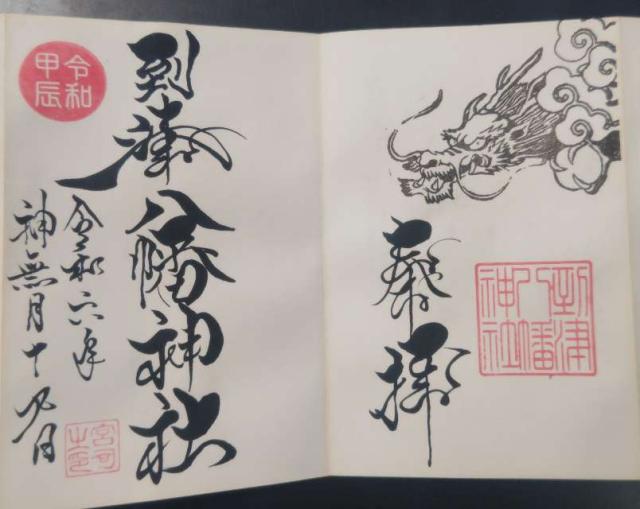 奉拝
到津八幡神社
到津八幡神社
令和甲辰
令和六年
神無月十九日
宮司之印